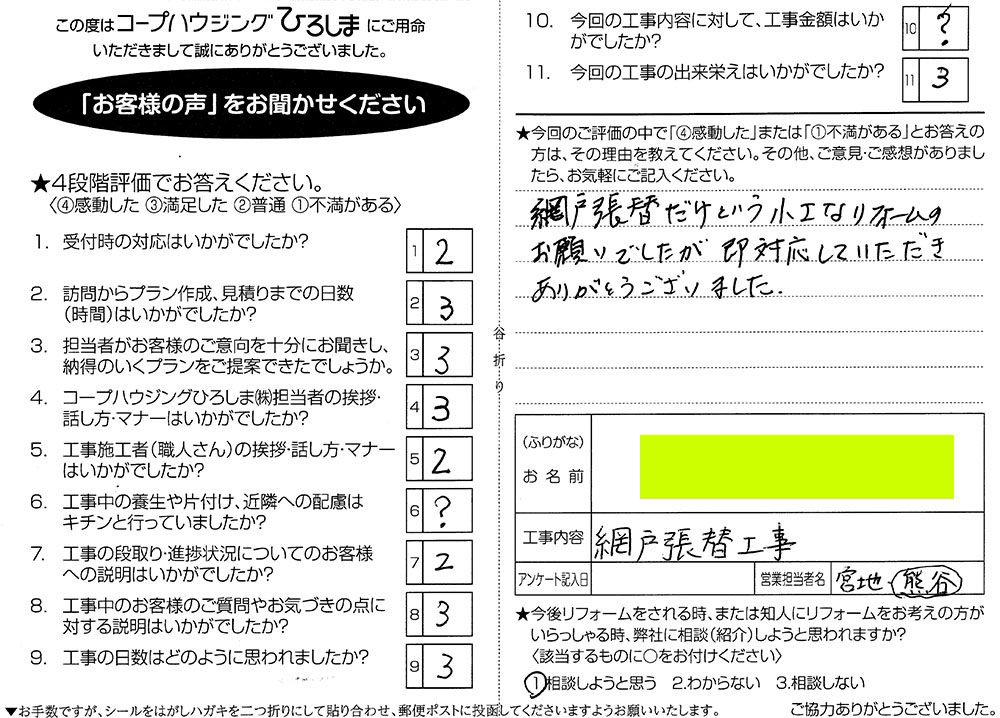 この度はコープハウジングひろしまにご用命
いただきまして誠にありがとうございました。
「お客様の声」をお聞かせください
★4段階評価でお答えください。
〈④感動した ③満足した ②普通 ①不満がある〉
1. 受付時の対応はいかがでしたか?
1 2
2. 訪問からプラン作成、見積りまでの日数
（時間）はいかがでしたか?
2 3
3. 担当者がお客様のご意向を十分にお聞きし、
納得のいくプランをご提案できたでしょうか。
3 3
4. コープハウジングひろしま㈱担当者の挨拶・
話し方・マナーはいかがでしたか?
4 3
5. 工事施工者（職人さん）の挨拶・話し方・マナー
はいかがでしたか?
5 2
6. 工事中の養生や片付け、近隣への配慮は
キチンと行っていましたか?
6 ?
7. 工事の段取り・進捗状況についてのお客様
への説明はいかがでしたか?
7 2
8. 工事中のお客様のご質問やお気づきの点に
対する説明はいかがでしたか?
8 3
9. 工事の日数はどのように思われましたか?
9 3
谷折り
10. 今回の工事内容に対して、工事金額はいか
がでしたか?
10 ?
11. 今回の工事の出来栄えはいかがでしたか?
11 3
★今回のご評価の中で「④感動した」または「①不満がある」とお答えの
方は、その理由を教えてください。その他、ご意見・ご感想がありまし
たら、お気軽にご記入ください。
網戸張替だけという小工なリフォームの
お願いでしたが 即対応していただき
ありがとうございました.
（ふりがな）
お名前
工事内容 網戸張替工事
アンケート記入日
営業担当者名 宮地・熊谷
★今後リフォームをされる時、または知人にリフォームをお考えの方が
いらっしゃる時、弊社に相談（紹介）しようと思われますか?
〈該当するものに○をお付けください〉
1.相談しようと思う 2.わからない 3.相談しない
▼お手数ですが、シールをはがしハガキを二つ折りにして貼り合わせ、郵便ポストに投函してくださいますようお願いいたします。
ご協力ありがとうございました。